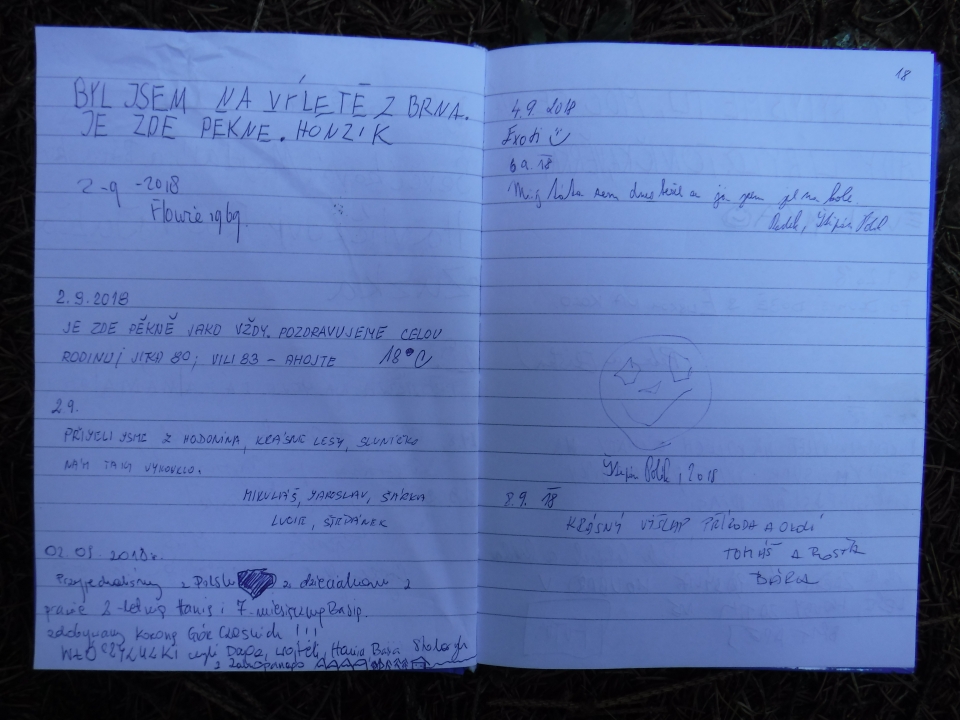 BYL JSEM NA VÝLETĚ Z BRNA.
JE ZDE PĚKNĚ. HONZÍK
2-9 -2018
Flowie 1969
2.9.2018
JE ZDE PĚKNĚ JAKO VŽDY. POZDRAVUJEME CELOU
RODINU; JITKA 80; VILI 83 – AHOJTE 18°C
2.9.
PŘIJELI JSME Z HODONÍNA, KRÁSNÉ LESY, SLUNÍČKO
NÁM TAKY VYKOUKLO.
MIKULÁŠ, JAROSLAV,
LUCIE, ŠTĚPÁNEK
02.09.2018r.
Przyjechaliśmy z Polski z dzieciakami z
prawie 2-letnią Hanią i 7-miesięczną Basią.
zdobywamy Koronę Gór Czeskich !!!
czyli Daga, Wojtek, Hania Basia
z Zakopanego
18
4.9. 2018
Exoti
6 9. 18
Štěpán Polák, 2018
8.9. 18
KRÁSNÝ VÝŠLAP PŘÍRODA A OKOLÍ
TOMÁŠ A
BÁRA